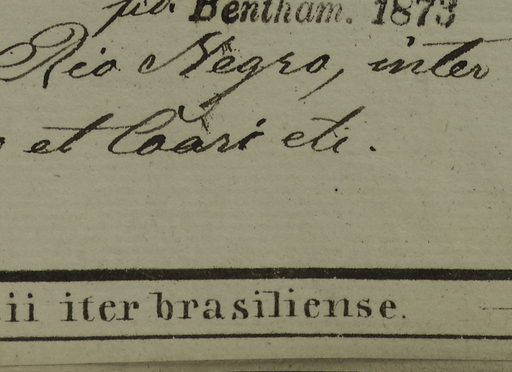 Bentham. 1873
Rio Negro, inter
et Coari etc.
ii iter brasiliense.